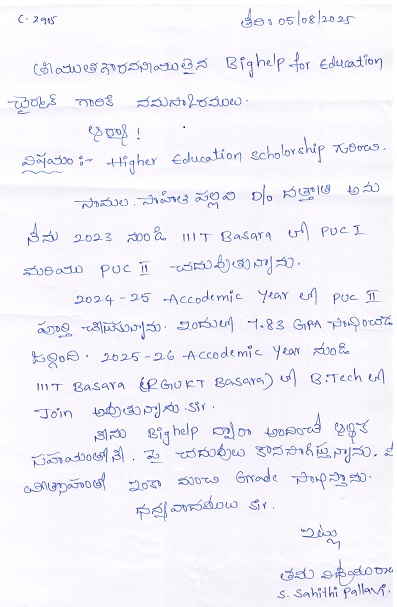 C. 2915
తేది: 05/08/2025
శ్రీయుత గౌరవనీయులైన Bighelp for Education
చైర్మెన్ గారికి నమస్కారములు.
ఆర్యా!
విషయం :- Higher Education Scholorship గురించి.
సామల. సాహితి పల్లవి D/o దత్తాత్రి అను
నేను 2023 నుండి IIIT Basara లో PUC I
మరియు PUC II చదువుతున్నాను.
2024-25 Accodemic Year లో PUC II
పూర్తి చేసుకున్నాను. ఇందులో 7.83 GPA సాధించడం
జరిగింది. 2025-26 Accodemic Year నుండి
IIIT Basara (RGUKT Basara) లో B.Tech లో
Join అవుతున్నాను Sir.
నేను Bighelp ద్వారా అందించే ఆర్థిక
సహాయంతోనే. పై చదువులు కొనసాగిస్తున్నాను.
ప్రోత్సాహంతో ఇంకా మంచి Grade సాధిస్తాను.
ధన్యవాదములు Sir.
ఇట్లు
తమ విధేయురాలు
S. Sahithi Pallavi.